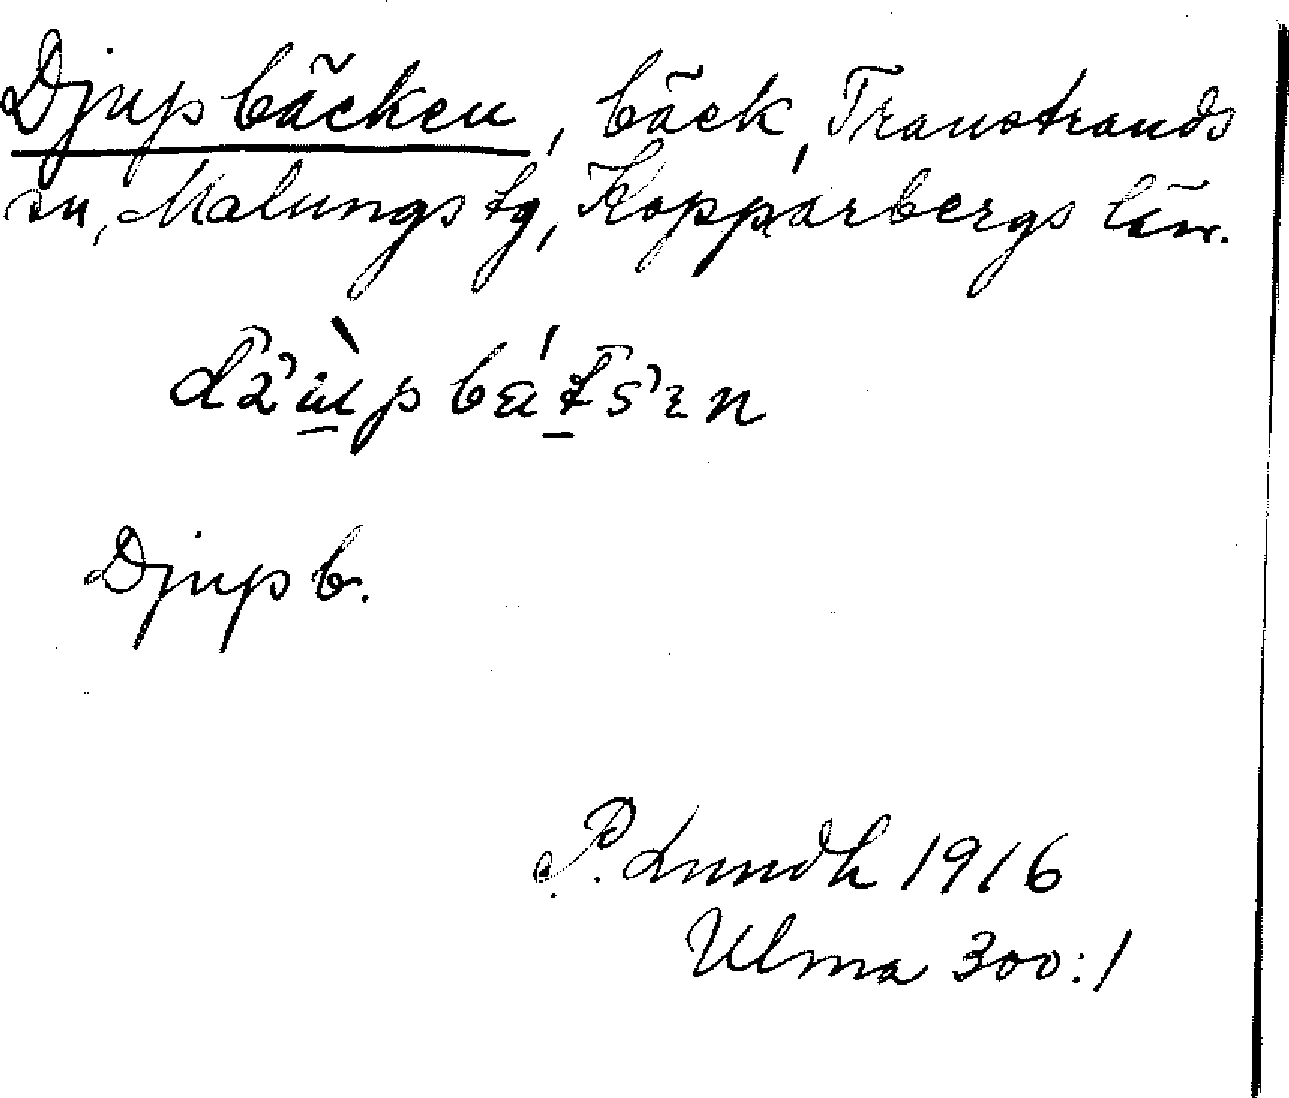 Djupbäcken, bäck, Transtrands
sn, Malungs tg, Kopparbergs län.
Djupb.
P. Lundh 1916
Ulma 300:1